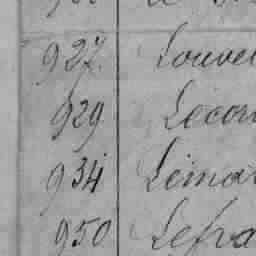 927 Louve
929 Lecon
934 Lemar
950 Lefra